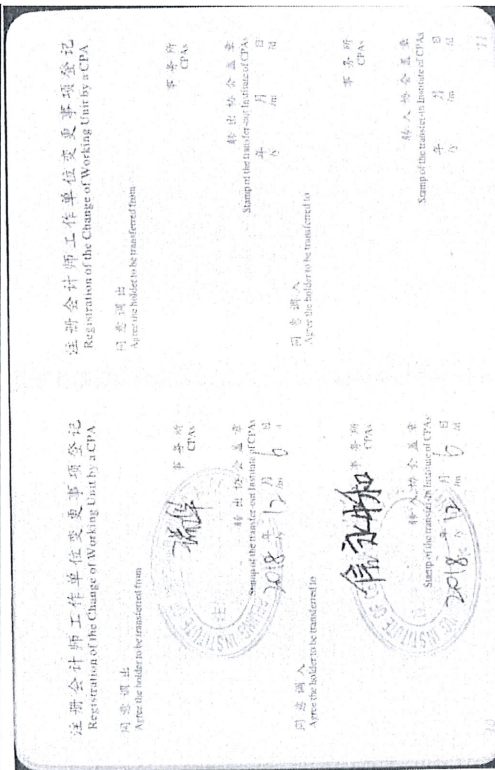 注册会计师工作单位变更事项登记
Registration of the Change of Working Unit by a CPA
同意调出
Agree the holder to be transferred from
瑞华
事务所
CPAs
转出协会盖章
Stamp of the transfer-out Institute of CPAs
2018年12月6日
同意调入
Agree the holder to be transferred to
信永中和
事务所
CPAs
转入协会盖章
Stamp of the transfer-in Institute of CPAs
2018年12月6日
10
注册会计师工作单位变更事项登记
Registration of the Change of Working Unit by a CPA
同意调出
Agree the holder to be transferred from
事务所
CPAs
转出协会盖章
Stamp of the transfer-out Institute of CPAs
年 月 日
/y /m /d
同意调入
Agree the holder to be transferred to
事务所
CPAs
转入协会盖章
Stamp of the transfer-in Institute of CPAs
年 月 日
/y /m /d
11